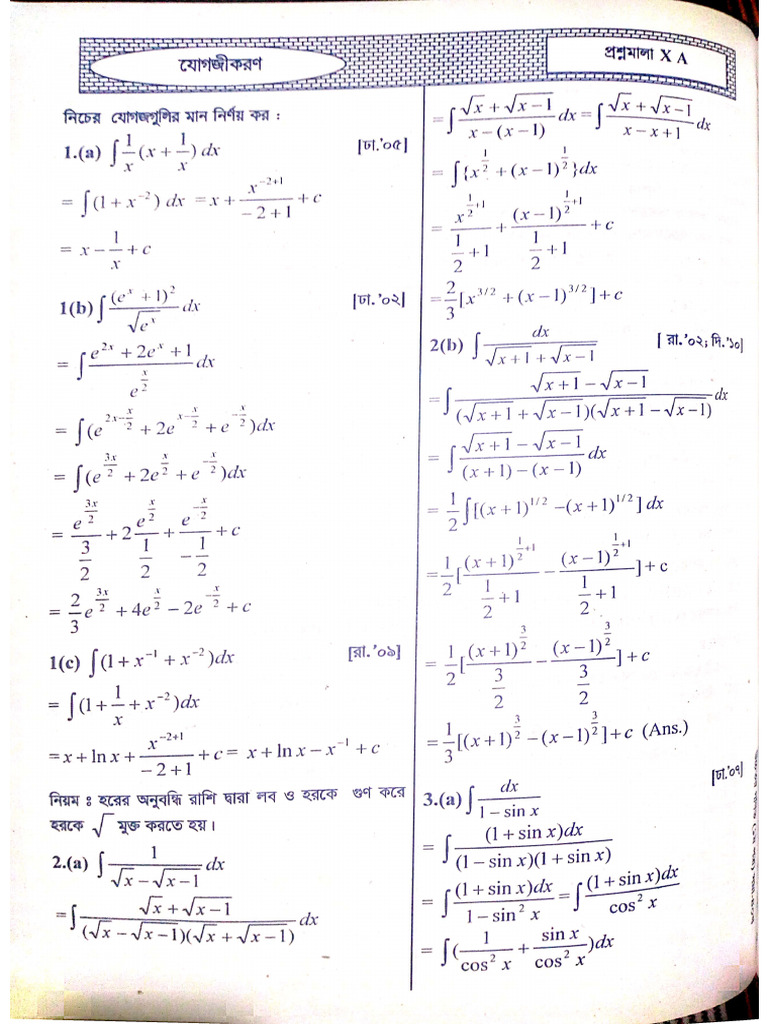 যোগজীকরণ
প্রশ্নমালা X A
নিচের যোগজগুলির মান নির্ণয় কর :
1.(a) ∫ 1/x (x + 1/x) dx [ঢা.'০৫]
= ∫(1 + x^{-2}) dx = x + x^{-2+1}/(-2+1) + c
= x - 1/x + c
1(b) ∫ (e^x + 1)^2/√(e^x) dx [ঢা.'০২]
= ∫ (e^{2x} + 2e^x + 1)/e^{x/2} dx
= ∫(e^{2x-x/2} + 2e^{x-x/2} + e^{-x/2})dx
= ∫(e^{3x/2} + 2e^{x/2} + e^{-x/2})dx
= e^{3x/2}/(3/2) + 2 e^{x/2}/(1/2) + e^{-x/2}/(-1/2) + c
= 2/3 e^{3x/2} + 4e^{x/2} - 2e^{-x/2} + c
1(c) ∫(1 + x^{-1} + x^{-2})dx [রা.'০৯]
= ∫(1 + 1/x + x^{-2})dx
= x + ln x + x^{-2+1}/(-2+1) + c = x + ln x - x^{-1} + c
নিয়ম ঃ হরের অনুবন্ধি রাশি দ্বারা লব ও হরকে গুণ করে
হরকে √ মুক্ত করতে হয়।
2.(a) ∫ 1/(√x - √(x-1)) dx
= ∫ (√x + √(x-1))/((√x - √(x-1))(√x + √(x-1))) dx
= ∫ (√x + √(x-1))/(x - (x-1)) dx = ∫ (√x + √(x-1))/(x - x + 1) dx
= ∫{x^{1/2} + (x-1)^{1/2}}dx
= x^{1/2+1}/(1/2+1) + (x-1)^{1/2+1}/(1/2+1) + c
= 2/3 [x^{3/2} + (x-1)^{3/2}] + c
2(b) ∫ dx/(√(x+1) + √(x-1)) [ রা.'০২; সি.'১০]
= ∫ (√(x+1) - √(x-1))/((√(x+1) + √(x-1))(√(x+1) - √(x-1))) dx
= ∫ (√(x+1) - √(x-1))/((x+1) - (x-1)) dx
= 1/2 ∫[(x+1)^{1/2} - (x+1)^{1/2}] dx
= 1/2 [(x+1)^{1/2+1}/(1/2+1) - (x-1)^{1/2+1}/(1/2+1)] + c
= 1/2 [(x+1)^{3/2}/(3/2) - (x-1)^{3/2}/(3/2)] + c
= 1/3 [(x+1)^{3/2} - (x-1)^{3/2}] + c (Ans.)
3.(a) ∫ dx/(1 - sin x) [ঢা.'০৭]
= ∫ (1 + sin x)dx/((1 - sin x)(1 + sin x))
= ∫ (1 + sin x)dx/(1 - sin^2 x) = ∫ (1 + sin x)dx/cos^2 x
= ∫(1/cos^2 x + sin x/cos^2 x)dx